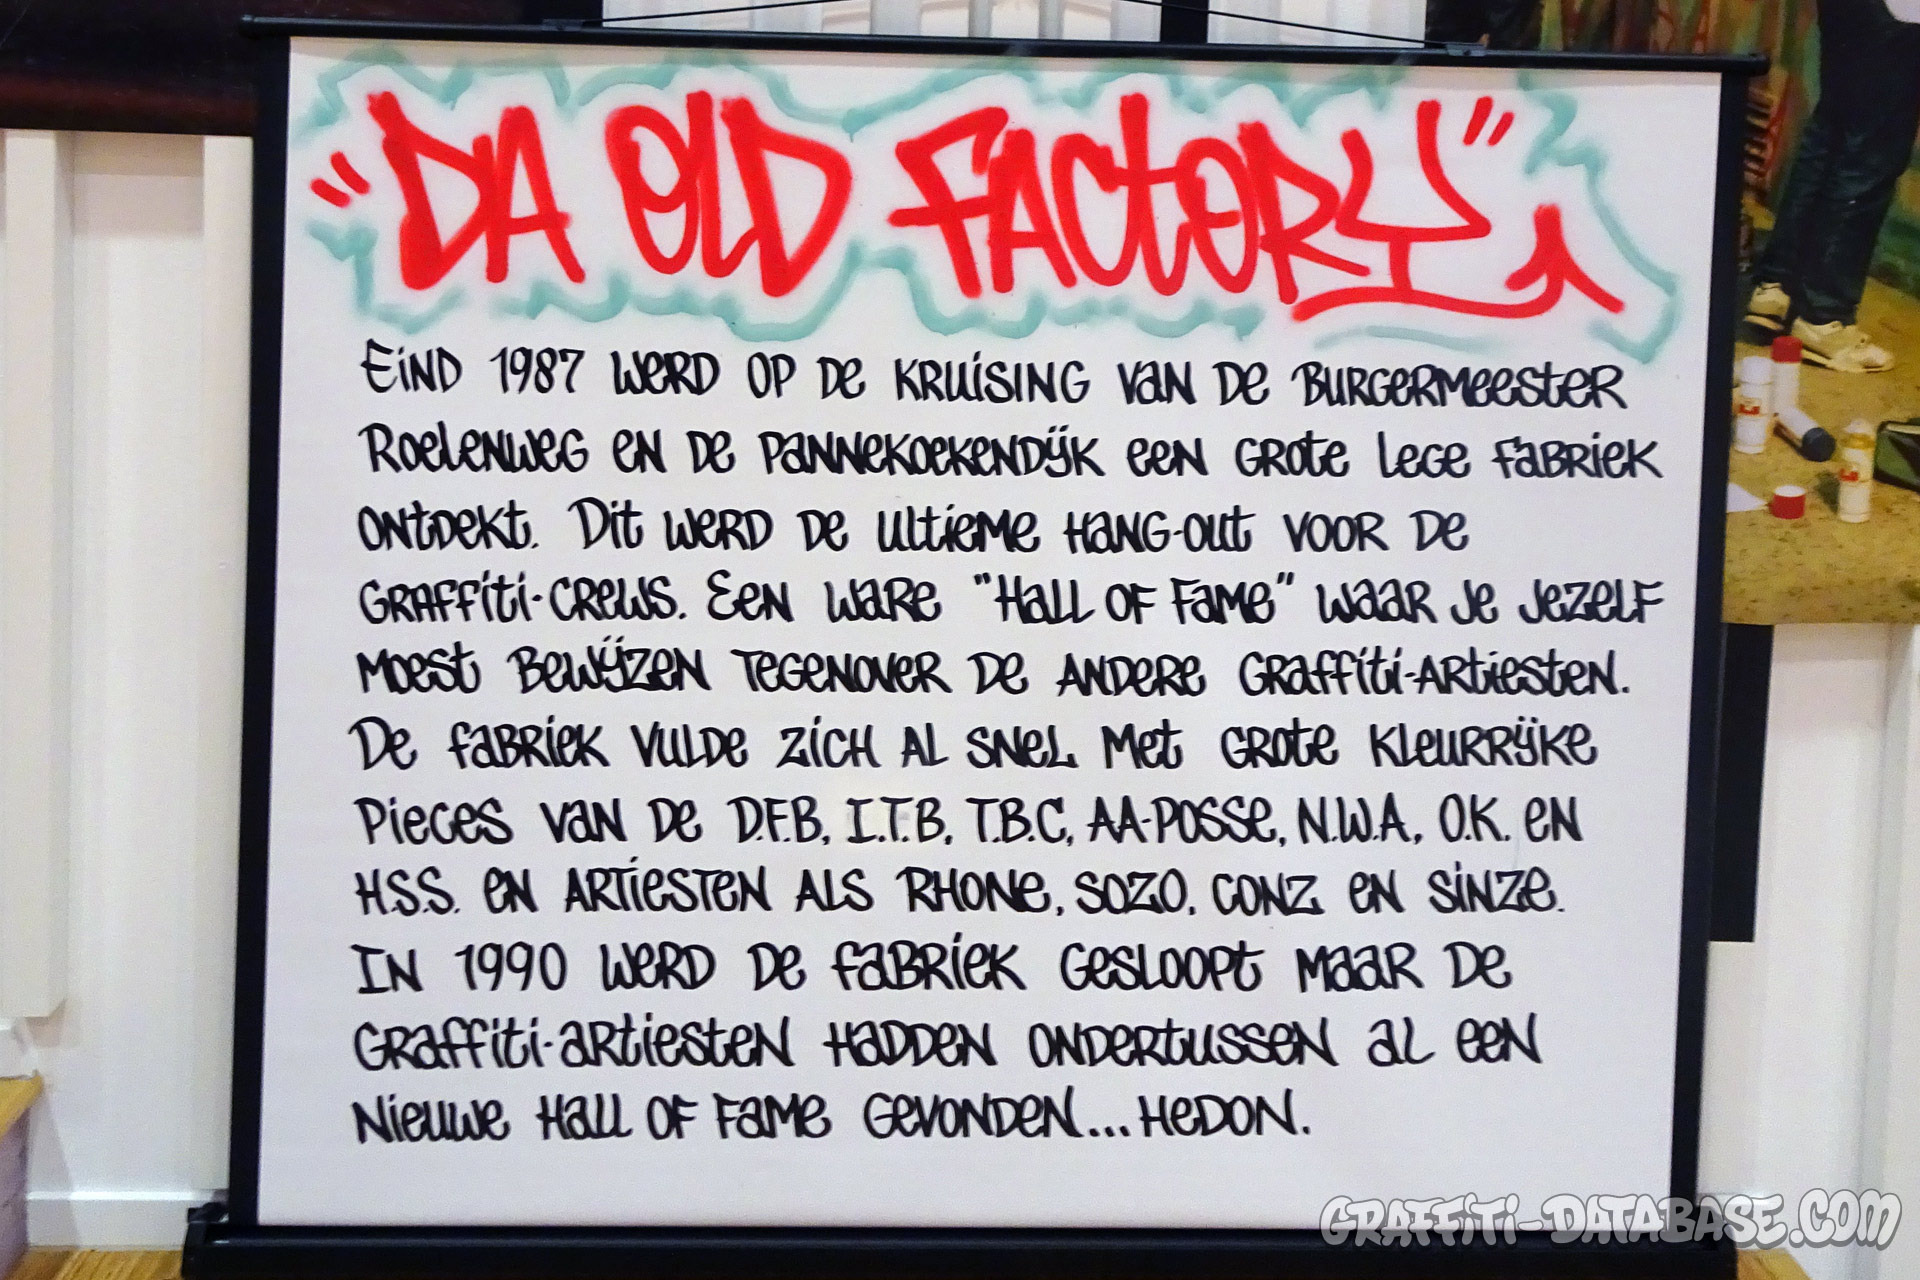 "DA OLD FACTORY"
Eind 1987 werd op de kruising van de Burgermeester
Roelenweg en de Pannekoekendijk een grote lege fabriek
ontdekt. Dit werd de ultieme hang-out voor de
graffiti-crews. Een ware "Hall of Fame" waar je jezelf
moest bewijzen tegenover de andere graffiti-artiesten.
De fabriek vulde zich al snel met grote kleurrijke
pieces van de D.F.B, I.T.B, T.B.C, AA-Posse, N.W.A, O.K. en
H.S.S. en artiesten als Rhone, Sozo, Conz en Sinze.
In 1990 werd de fabriek gesloopt maar de
graffiti-artiesten hadden ondertussen al een
nieuwe Hall of Fame gevonden...Hedon.
GRAFFITI-DATABASE.COM